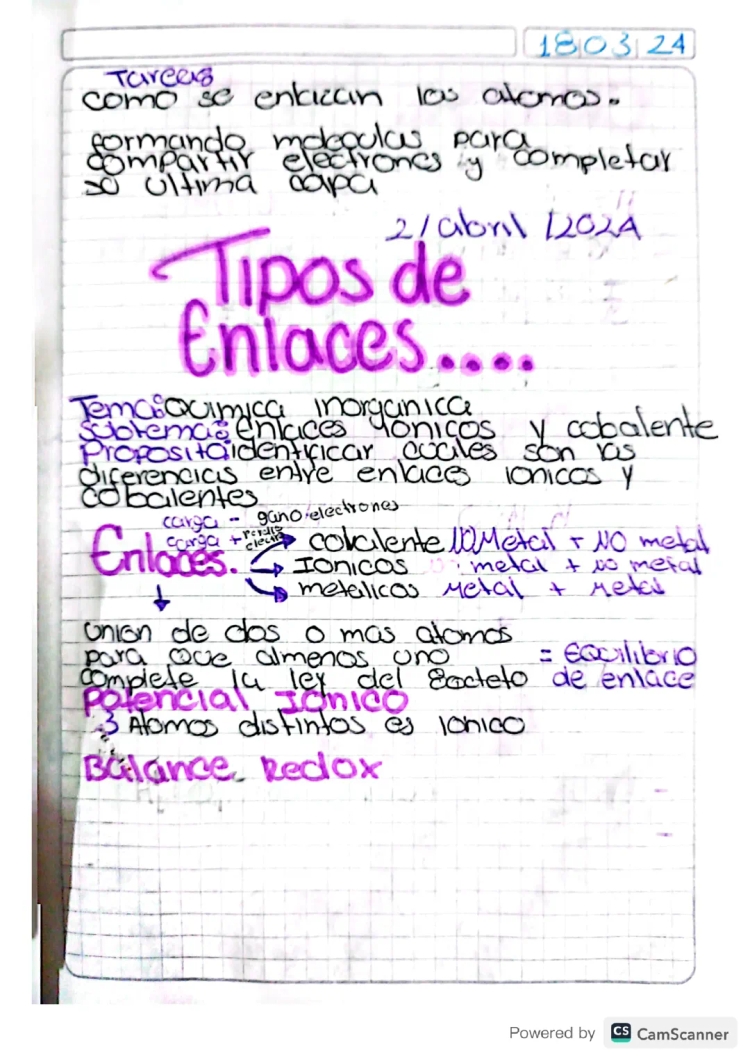 18 03 24
Tareas
como se enlazan los atomos.
formando moleculas para
compartir electrones y completar
su ultima capa
2/abril/2024
Tipos de
Enlaces....
Tema: Quimica inorganica
Subtema: Enlaces ionicos y cobalente
Proposito: identificar cuales son las
diferencias entre enlaces ionicos y
cobalentes
carga - gano electrones
carga + perdio electro
Enlaces.
covalente NO Metal + NO metal
Ionicos metal + no metal
metalicos Metal + Metal
Union de dos o mas atomos
para que almenos uno = Equilibrio
complete la ley del 8octeto de enlace
Potencial Ionico
3 Atomos distintos es ionico
Balance Redox
Powered by CS CamScanner